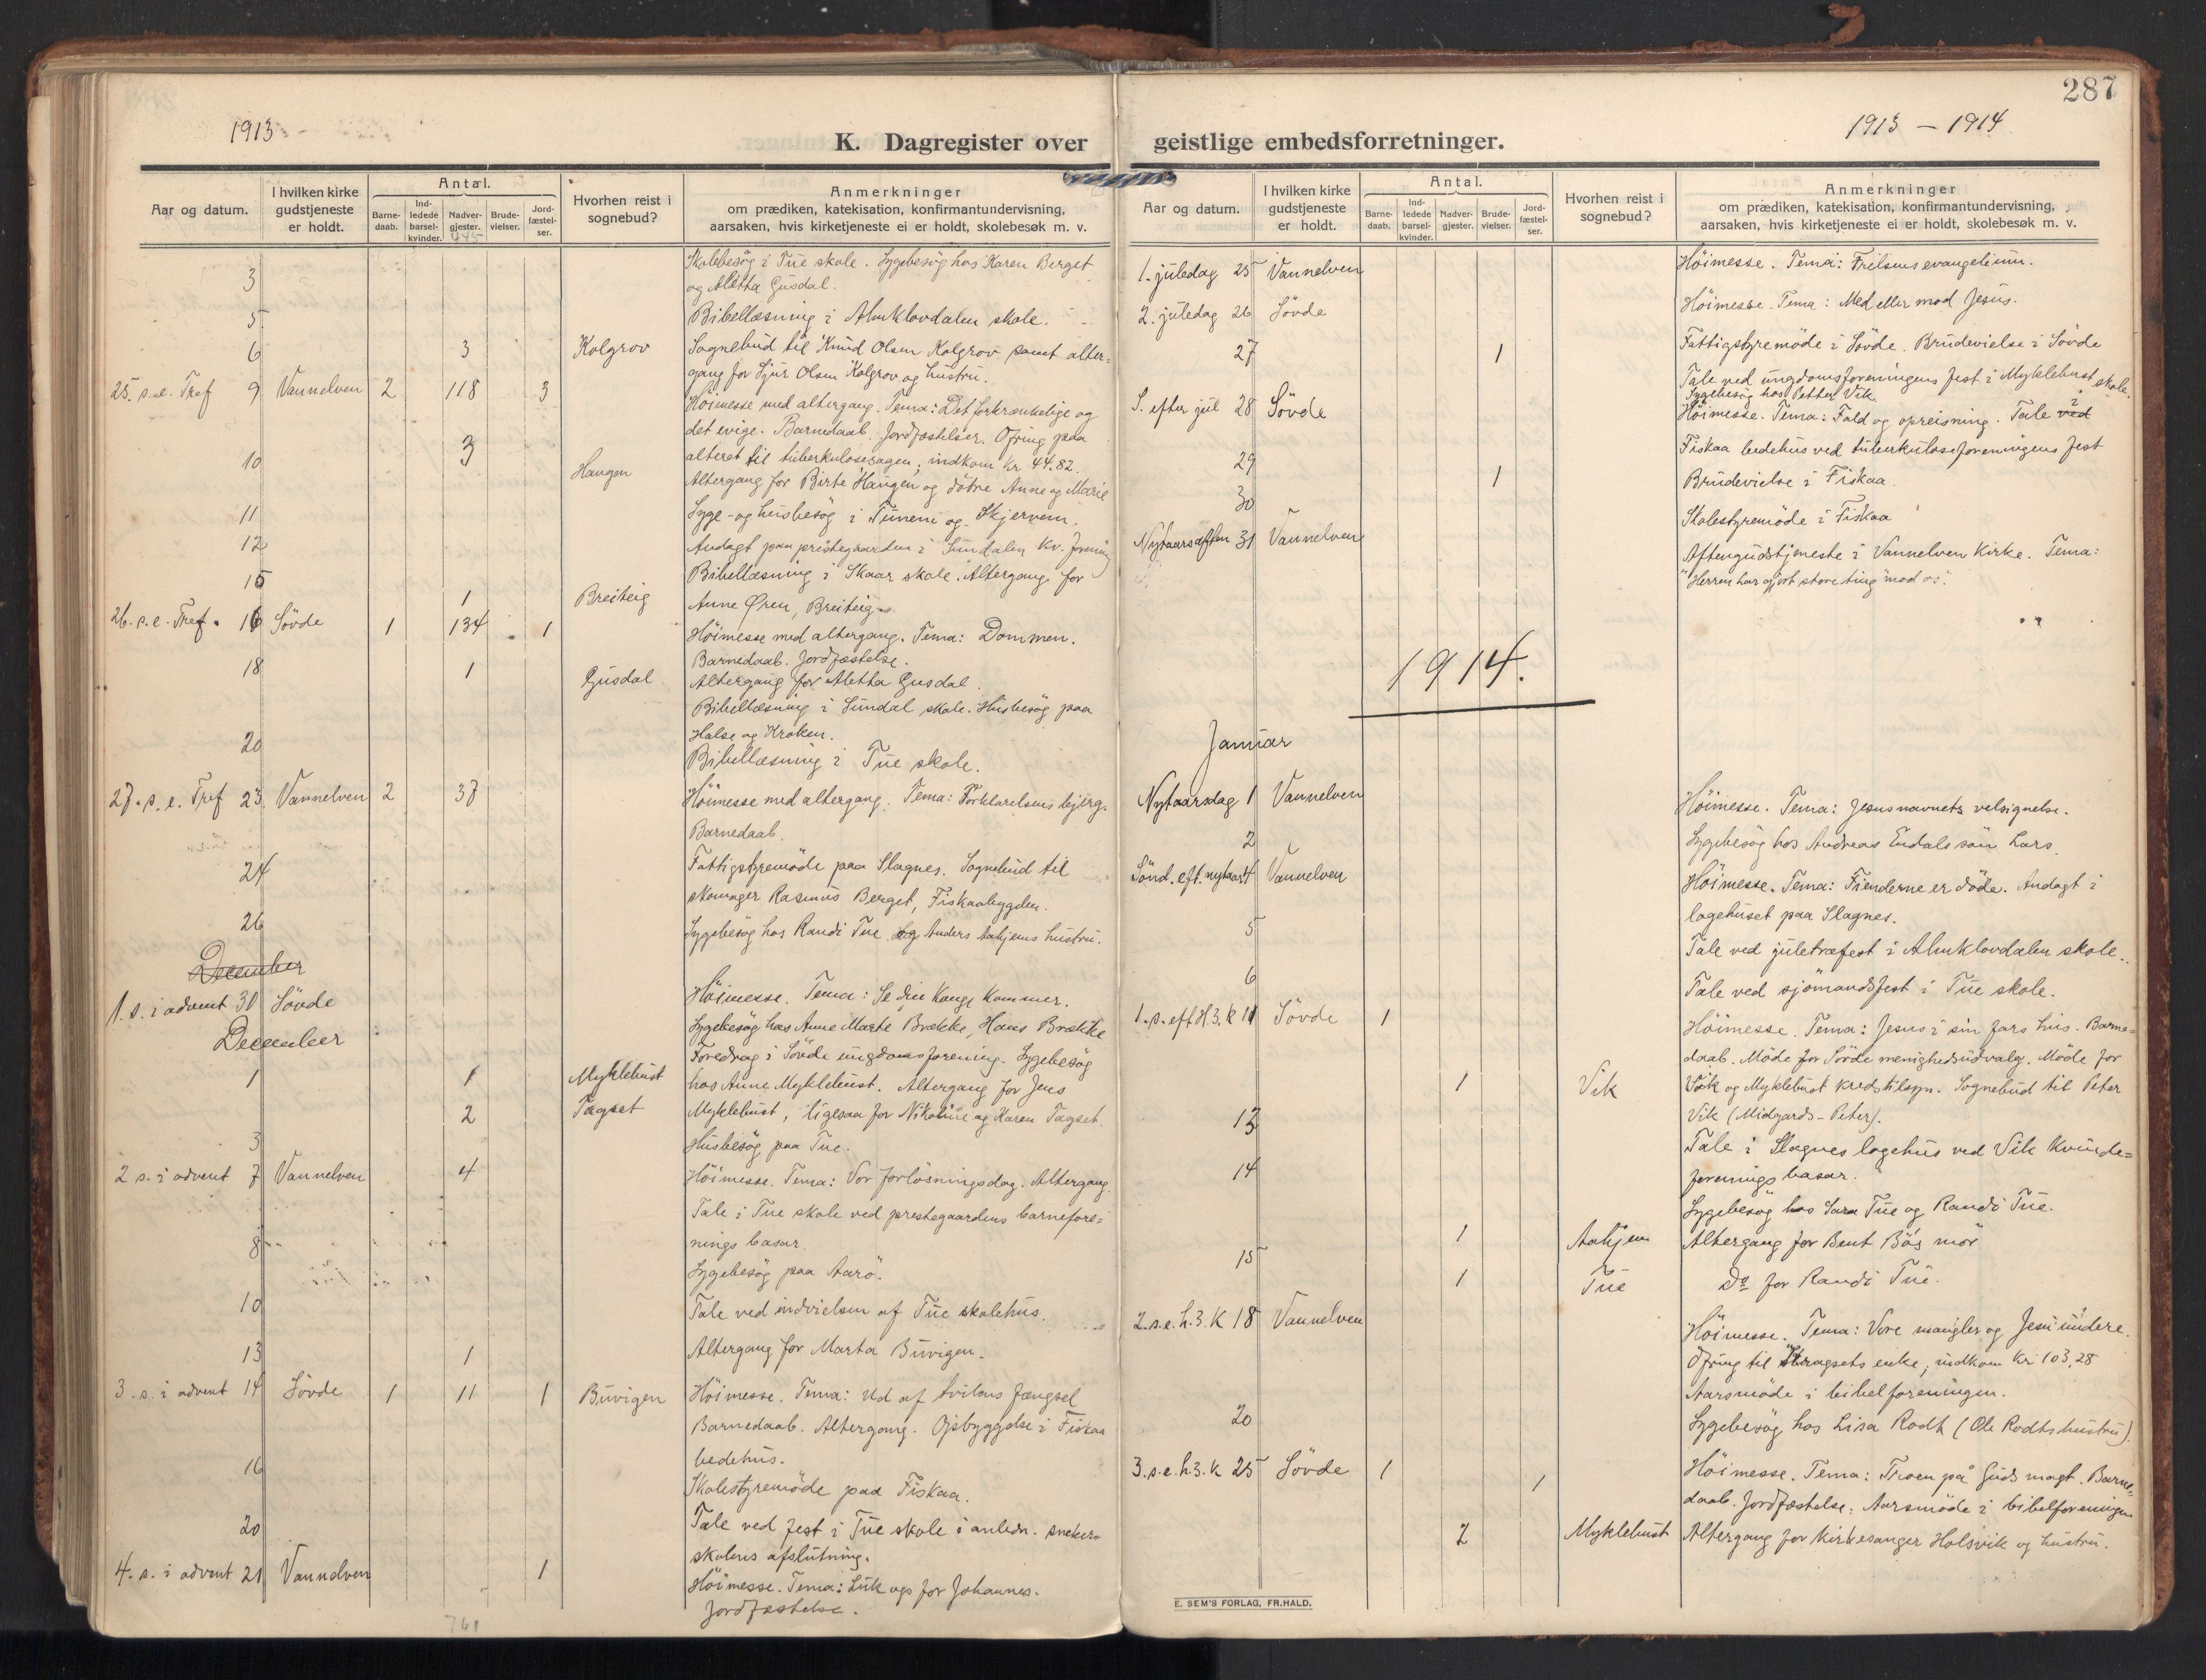 1913
K. Dagregister over
Aar og datum.
I hvilken kirke gudstjeneste er holdt.
Antal.
Barne-daab.
Ind-ledede barsel-kvinder.
Nadver-gjester.
Brude-vielser.
Jord-fæstel-ser.
Hvorhen reist i sognebud?
Anmerkninger
om prædiken, katekisation, konfirmantundervisning,
aarsaken, hvis kirketjeneste ei er holdt, skolebesøk m. v.
3 Skolebesøg i Tue skole. Sygebesøg hos Karen Berget
og Aletha Gusdal.
5 Bibellæsning i Almklovdalen skole.
6 3 Kolgrov Sognebud til Knud Olsen Kolgrov samt alter=
gang for Sjur Olsen Kolgrov og hustru.
25. s.e. Tref 9 Vannelven 2 118 3 Höimesse med altergang. Tema: Det forkrænkelige og
det evige. Barnedaab. Jordfæstelser. Ofring paa
alteret til tuberkulosesagen; indkom Kr 44.82.
10 3 Haugen Altergang for Birte Haugen og døtre Anne og Marie
11 Syge- og husbesøg i Tunem og Skjervem.
12 Andagt paa prestegaarden i Sundalen kv. forening
15 Bibellæsning i Skaar skole. Altergang for
1 Breiteig Anne Øren, Breiteig
26. s.e. Tref. 16 Søvde 1 134 1 Höimesse med altergang. Tema: Dommen.
Barnedaab. Jordfæstelse.
18 1 Gusdal Altergang for Aletha Gusdal.
Bibellæsning i Sundal skole. Husbesøg paa
Halse og Kroken.
20 Bibellæsning i Tue skole.
27. s. e. Tref 23 Vannelven 2 37 Höimesse med altergang. Tema: Forklarelsens bjerg.
Barnedaab.
24 Fattigstyremøde paa Slagnes. Sognebud til
skomager Rasmus Berget, Fiskaabygden.
26 Sygebesøg hos Randi Tue og Anders Aahjems hustru.
December
1. s. i advent 30 Søvde Höimesse. Tema: Se din konge kommer.
Sygebesøg hos Anne Marte Brække, Hans Brække
December Foredrag i Søvde ungdomsforening. Sygebesøg
1 1 Myklebust hos Anne Myklebust. Altergang for Jens
2 Tagset Myklebust, ligesaa for Nikoline og Karen Tagset.
3 Husbesøg paa Tue.
2 s. i advent 7 Vannelven 4 Höimesse. Tema: Vor forløsningsdag. Altergang.
Tale i Tue skole ved prestegaardens barnefore=
nings basar.
8 Sygebesøg paa Aarø.
10 Tale ved indvielsen af Tue skolehus.
13 1 Altergang for Marta Buvigen.
3. s. i advent 14 Søvde 1 11 1 Buvigen Höimesse. Tema: Ud af tvilens fængsel
Barnedaab. Altergang. Opbyggelse i Fiskaa
bedehus.
16 Skolestyremøde paa Fiskaa.
20 Tale ved fest i Tue skole i anledn. sneker=
skolens afslutning.
4. s. i advent 21 Vannelven 1 Höimesse. Tema: Luk op for Johannes.
Jordfæstelse.
761
287
1913 – 1914
geistlige embedsforretninger.
Aar og datum.
I hvilken kirke gudstjeneste er holdt.
Antal.
Barne-daab.
Ind-ledede barsel-kvinder.
Nadver-gjester.
Brude-vielser.
Jord-fæstel-ser.
Hvorhen reist i sognebud?
Anmerkninger
om prædiken, katekisation, konfirmantundervisning,
aarsaken, hvis kirketjeneste ei er holdt, skolebesøk m. v.
1. juledag 25 Vannelven Höimesse. Tema: Frelsens evangelium.
2. juledag 26 Søvde Höimesse. Tema: Med eller mod Jesus.
27 1 Fattigstyremøde i Søvde. Brudevielse i Søvde
Tale ved ungdomsforeningens fest i Myklebust skole.
Sygebesøg hos Petter Vik
S. efter jul 28 Søvde Höimesse. Tema: Fald og opreisning. Tale ved i
Fiskaa bedehus ved tuberkuloseforeningens fest
29 1 Brudevielse i Fiskaa.
30 Skolestyremøde i Fiskaa
Nytaarsaften 31 Vannelven Aftengudstjeneste i Vannelven Kirke. Tema:
"Herren har gjort store ting mod os".
1914.
Januar
Nytaarsdag 1 Vannelven Höimesse. Tema: Jesusnavnets velsignelse.
2 Sygebesøg hos Andreas Endals søn Lars.
Sønd. eft. nytaar 4 Vannelven Höimesse. Tema: Fienderne er døde. Andagt i
logehuset paa Slagnes.
5 Tale ved juletræfest i Almklovdalen skole.
6 Tale ved sjømandsfest i Tue skole.
1. s. eft H. 3. K 11 Søvde 1 Höimesse. Tema: Jesus i sin fars hus. Barne=
daab. Møde for Søvde menighedsudvalg. Møde for
1 Vik Vik og Myklebust kredstilsyn. Sognebud til Peter
Vik (Midgards-Peter).
13 Tale i Slagnes logehus ved Vik Kvinde=
forenings basar.
14 Sygebesøg hos Sara Tue og Randi Tue.
1 Aahjem Altergang for Bent Bøs mor
15 1 Tue Do for Randi Tue.
2. s.e. h. 3. K 18 Vannelven Höimesse. Tema: Vore mangler og Jesu undere.
Ofring til Kragsets enke, indkom Kr 103,28
Aarsmøde i bibelforeningen.
20 Sygebesøg hos Lisa Rodt (Ole Rodts hustru).
3. s.e. h. 3. K 25 Søvde 1 1 Höimesse. Tema: Troen på Guds magt. Barne=
daab. Jordfæstelse. Aarsmøde i bibelforeningen
2 Myklebust Altergang for kirkesanger Holsvik og hustru.
E. SEM'S FORLAG, FR.HALD.